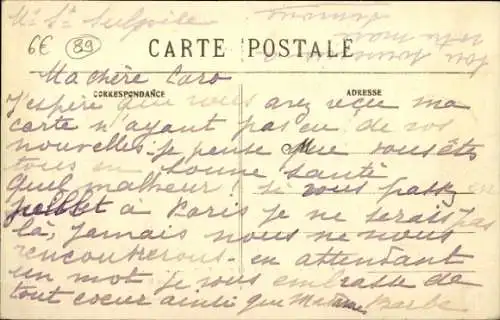 Mlle St Sulpice
6€ 89
CARTE POSTALE
Ma chère Caro
CORRESPONDANCE ADRESSE
J'espère que vous avez reçu ma
carte n'ayant pas eu de vos
nouvelles. je pense que vous êtes
tous en bonne santé
quel malheur! si vous passez en
juillet à Paris je ne serais pas
là, Jamais nous ne nous
rencontrerons. en attendant
un mot je vous embrasse de
tout coeur ainsi que Madame Barbe